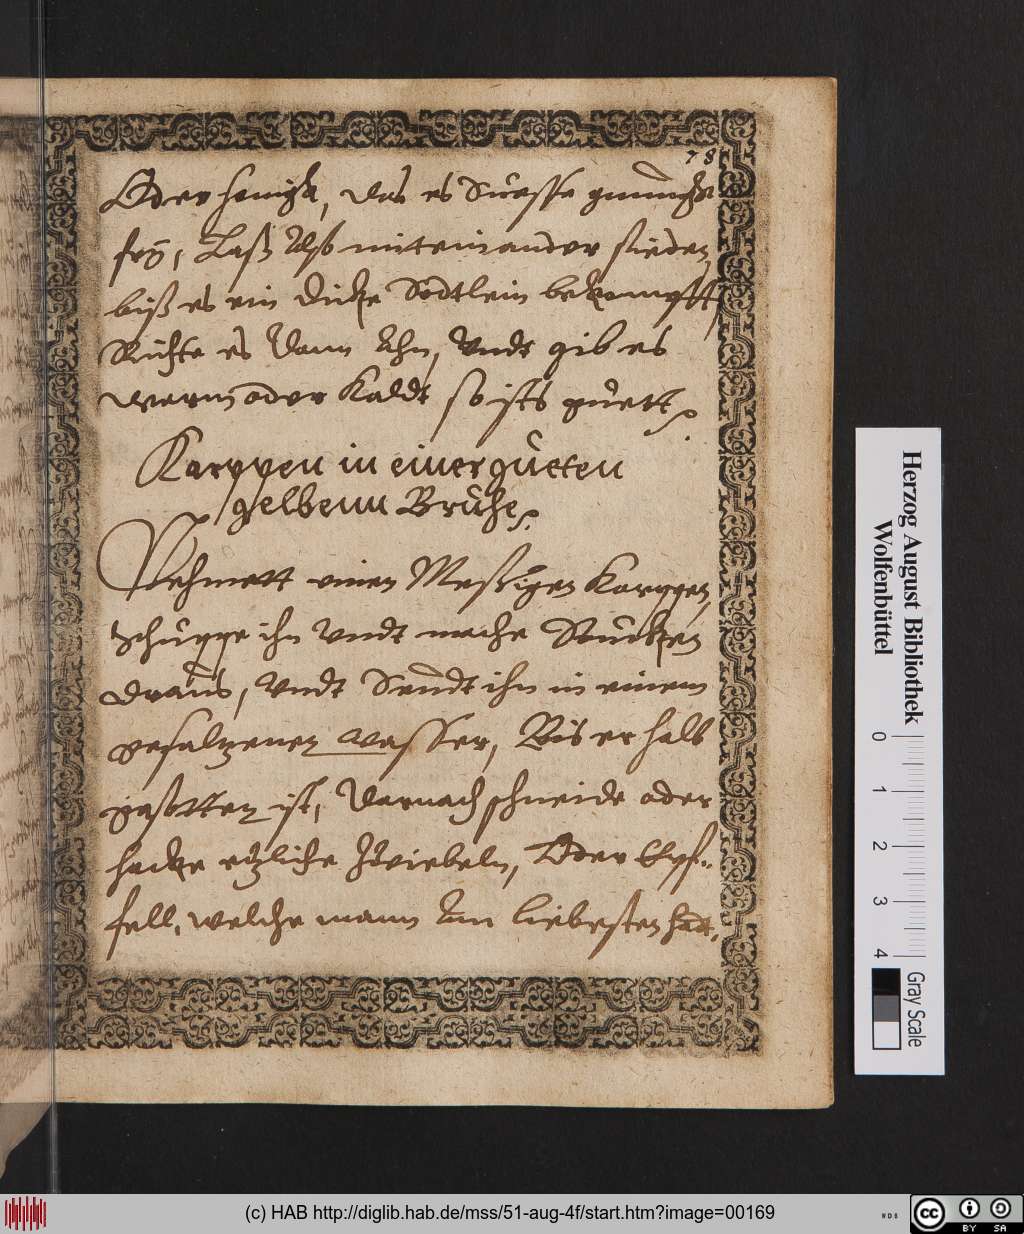 78
Oder honigk, das es Süesse gnuͦng
seÿ, Laß Als mitteinander sieden,
biß es ein dicke Södtlein bekompstt,
Richte es dann Ahn, Vndt gib es
warm oder Kaldt so ists guett.
Karppen in einer güeten
gelbenn Brühe.
Nehmett einen Messigen Karppen,
Schüppe ihn Vndt mache Stücken
draus, Vndt Seudt ihn in einem
gesaltzenen wasser, Bis er halb
gesotten ist, Darnach schneide oder
hacke etzliche Zwiebeln, Oder Epf-
fell, welche mann Am liebesten hadt,
Herzog August Bibliothek
Wolfenbüttel
0 1 2 3 4
Gray Scale
(c) HAB http://diglib.hab.de/mss/51-aug-4f/start.htm?image=00169
WDB
cc BY SA